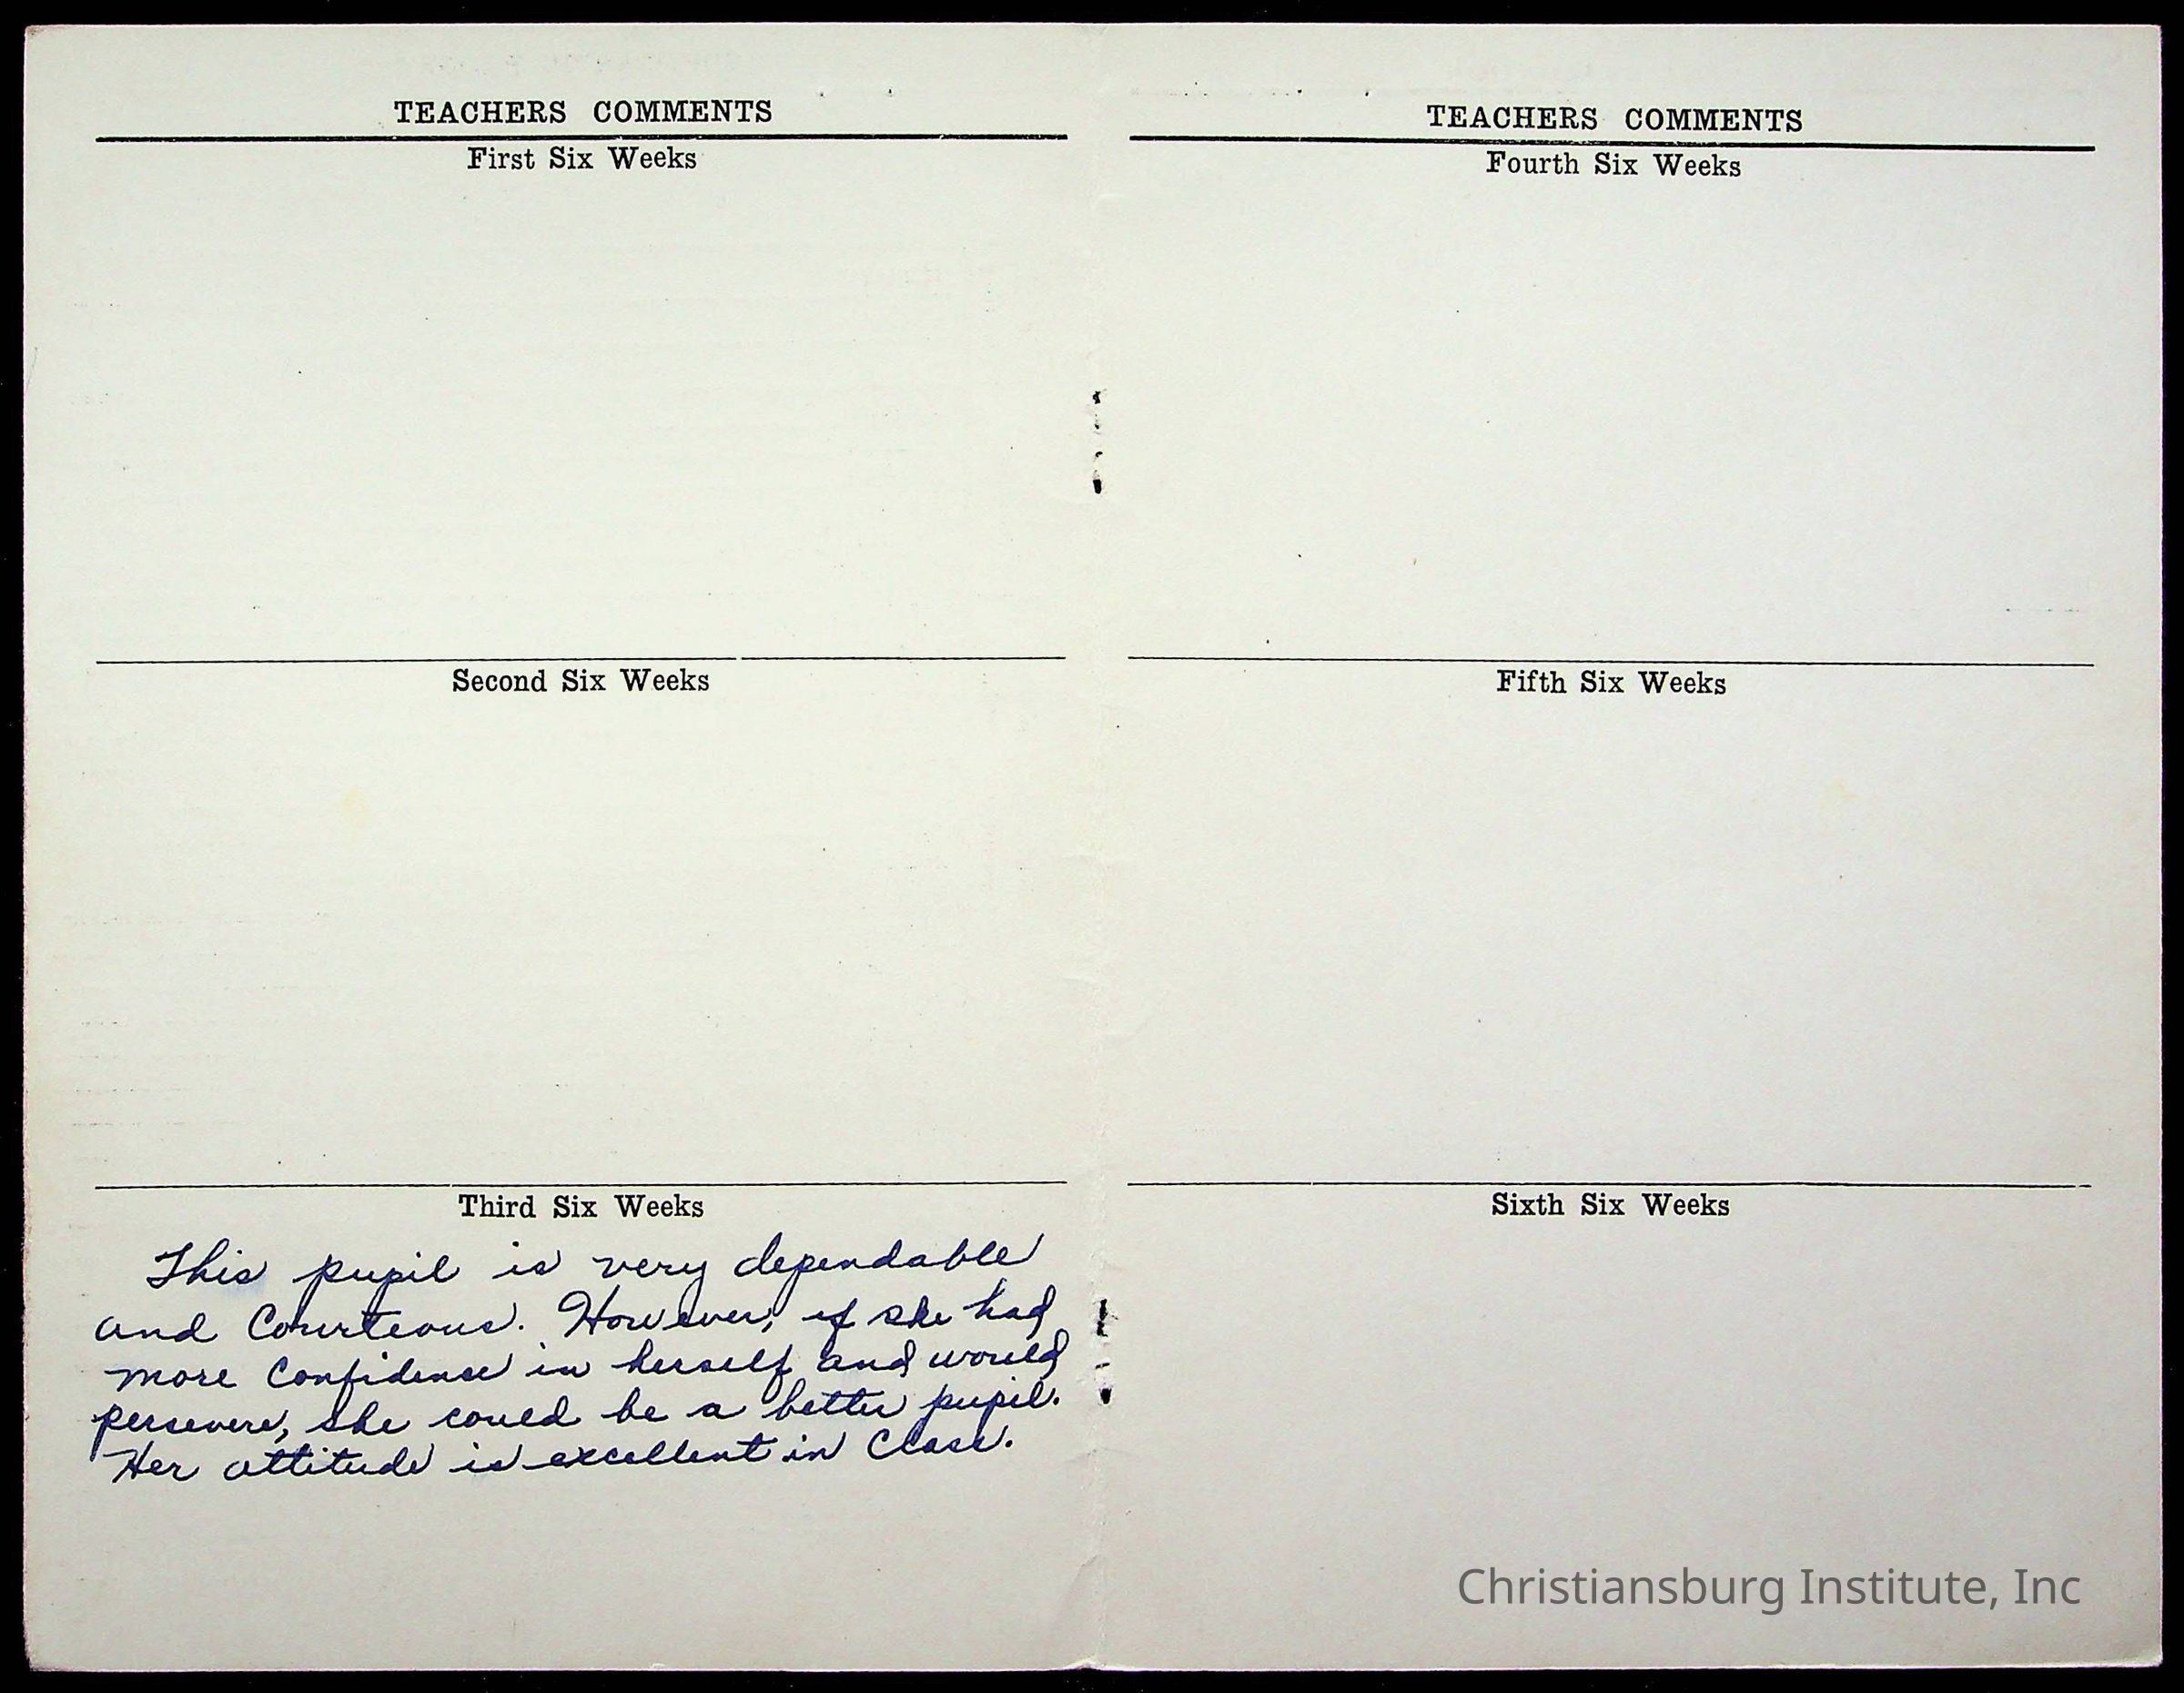 TEACHERS COMMENTS
First Six Weeks
Second Six Weeks
Third Six Weeks
This pupil is very dependable
and Courteous. However, if she had
more Confidence in herself and would
persevere, she could be a better pupil.
Her attitude is excellent in Class.
TEACHERS COMMENTS
Fourth Six Weeks
Fifth Six Weeks
Sixth Six Weeks
Christiansburg Institute, Inc